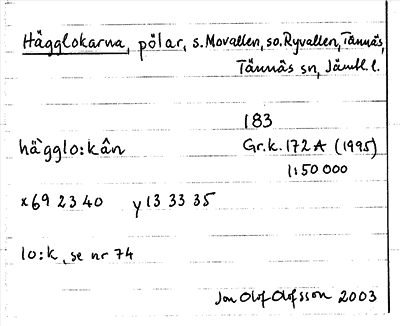 Hägglokarna, pölar, s. Movallen, so. Ryvallen, Tännäs,
Tännäs sn, Jämtl. l.
183
hägglo:kân Gr.k. 172 A (1995)
1:50 000
x 69 23 40 y 13 33 35
lo:k, se nr 74
Jan Olof Olofsson 2003